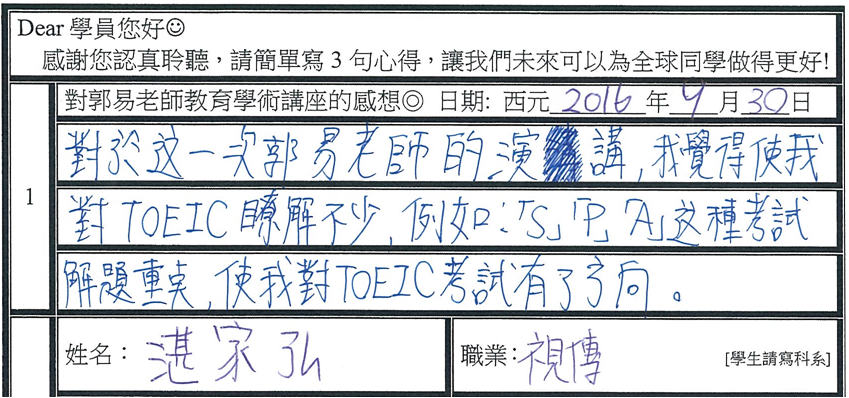 Dear 學員您好☺
感謝您認真聆聽，請簡單寫 3 句心得，讓我們未來可以為全球同學做得更好!
1
對郭易老師教育學術講座的感想◎ 日期: 西元 2016 年 9 月 30 日
對於这一次郭易老師的演講,我覺得使我
對TOEIC瞭解不少,例如:「S」「P」「A」这種考試
解題重点,使我對TOEIC考試有了方向。
姓名： 湛家弘 職業: 視傳 [學生請寫科系]